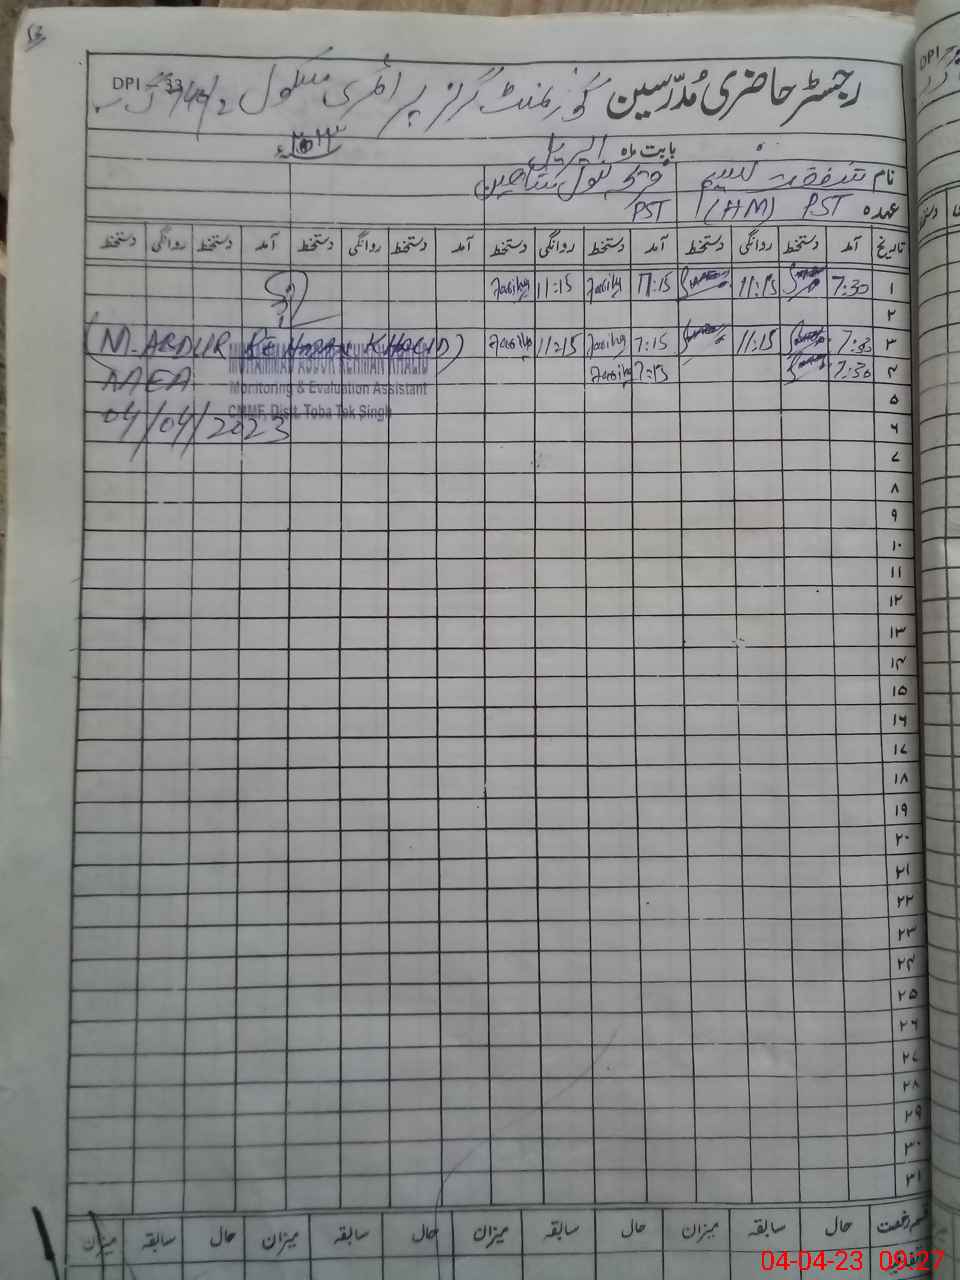 DPI - 33
رجسٹر حاضری مُدرّسین گورنمنٹ گرلز پرائمری سکول
بابت ماہ اپریل ۲۰۲۳ء
نام شفقت نسیم
عہدہ PST (HM) PST
تاریخ آمد دستخط روانگی دستخط آمد دستخط روانگی دستخط آمد دستخط روانگی دستخط آمد دستخط روانگی دستخط
۱ 7:30 11:15 11:15
۲
۳ 7:30 11:15 7:15 11:15
(M. ABDUR REHMAN KHALID)
MUHAMMAD ABDUR REHMAN KHALID
۴ 7:30 7:15
MEA
Monitoring & Evaluation Assistant
۵
CMMF, Distt. Toba Tek Singh
04/04/2023
۶
۷
۸
۹
۱۰
۱۱
۱۲
۱۳
۱۴
۱۵
۱۶
۱۷
۱۸
۱۹
۲۰
۲۱
۲۲
۲۳
۲۴
۲۵
۲۶
۲۷
۲۸
۲۹
۳۰
۳۱
رخصت حال سابقہ میزان حال سابقہ میزان حال سابقہ میزان حال سابقہ میزان
04-04-23 09:27